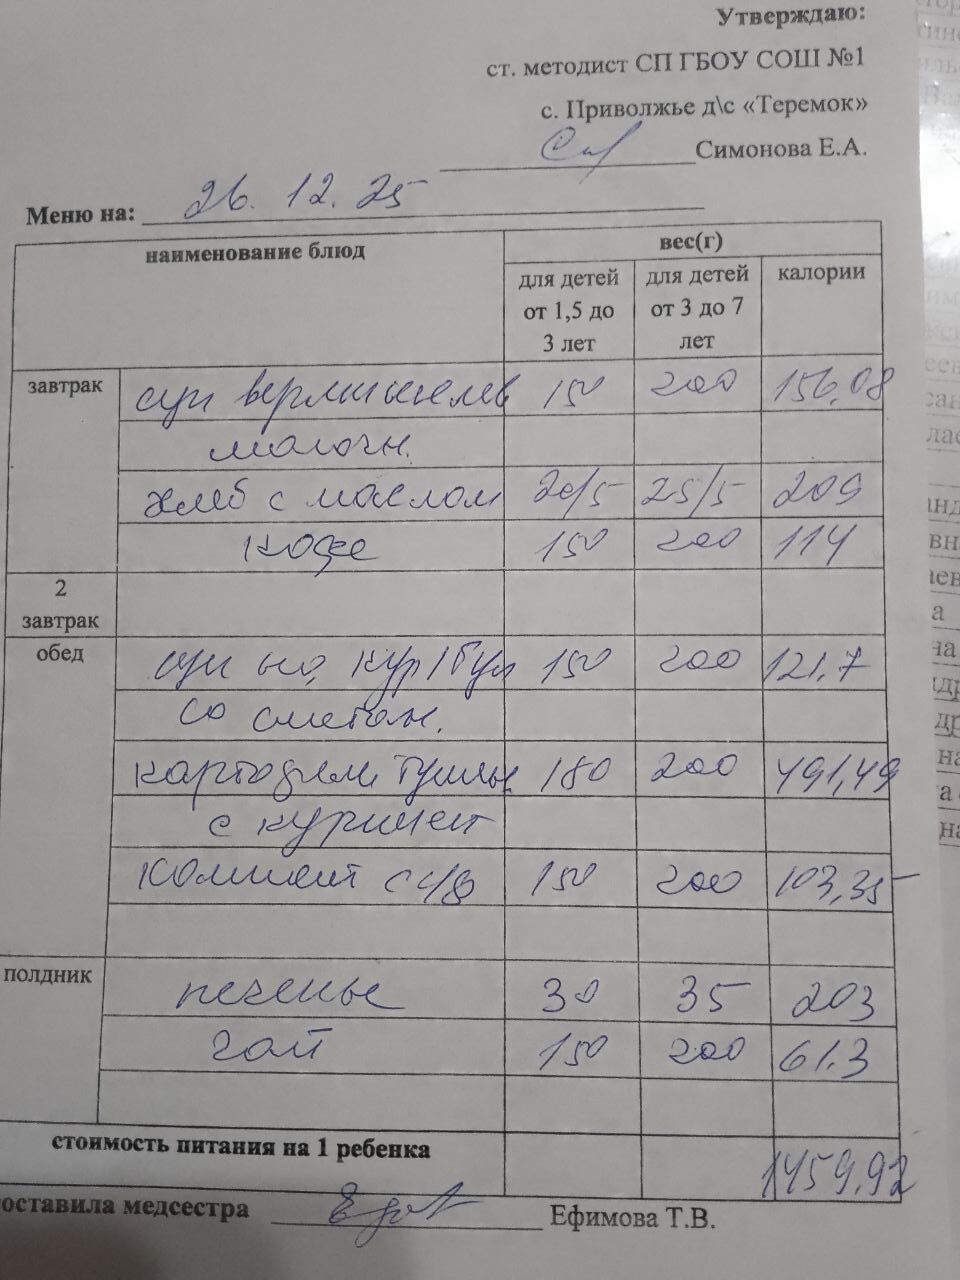 Утверждаю:
ст. методист СП ГБОУ СОШ №1
с. Приволжье д\с «Теремок»
Симонова Е.А.
Меню на: 26. 12. 25
наименование блюд
вес(г)
для детей от 1,5 до 3 лет
для детей от 3 до 7 лет
калории
завтрак суп вермишелев 150 200 156,08
молочн.
хлеб с маслом 20/5 25/5 209
кофе 150 200 114
2 завтрак
обед суп на кур/бул 150 200 121.7
со сметан.
картофель тушен 180 200 491,49
с курицей
компот с/ф 150 200 103,35
полдник печенье 30 35 203
чай 150 200 61.3
стоимость питания на 1 ребенка 1459,92
составила медсестра Ефимова Т.В.